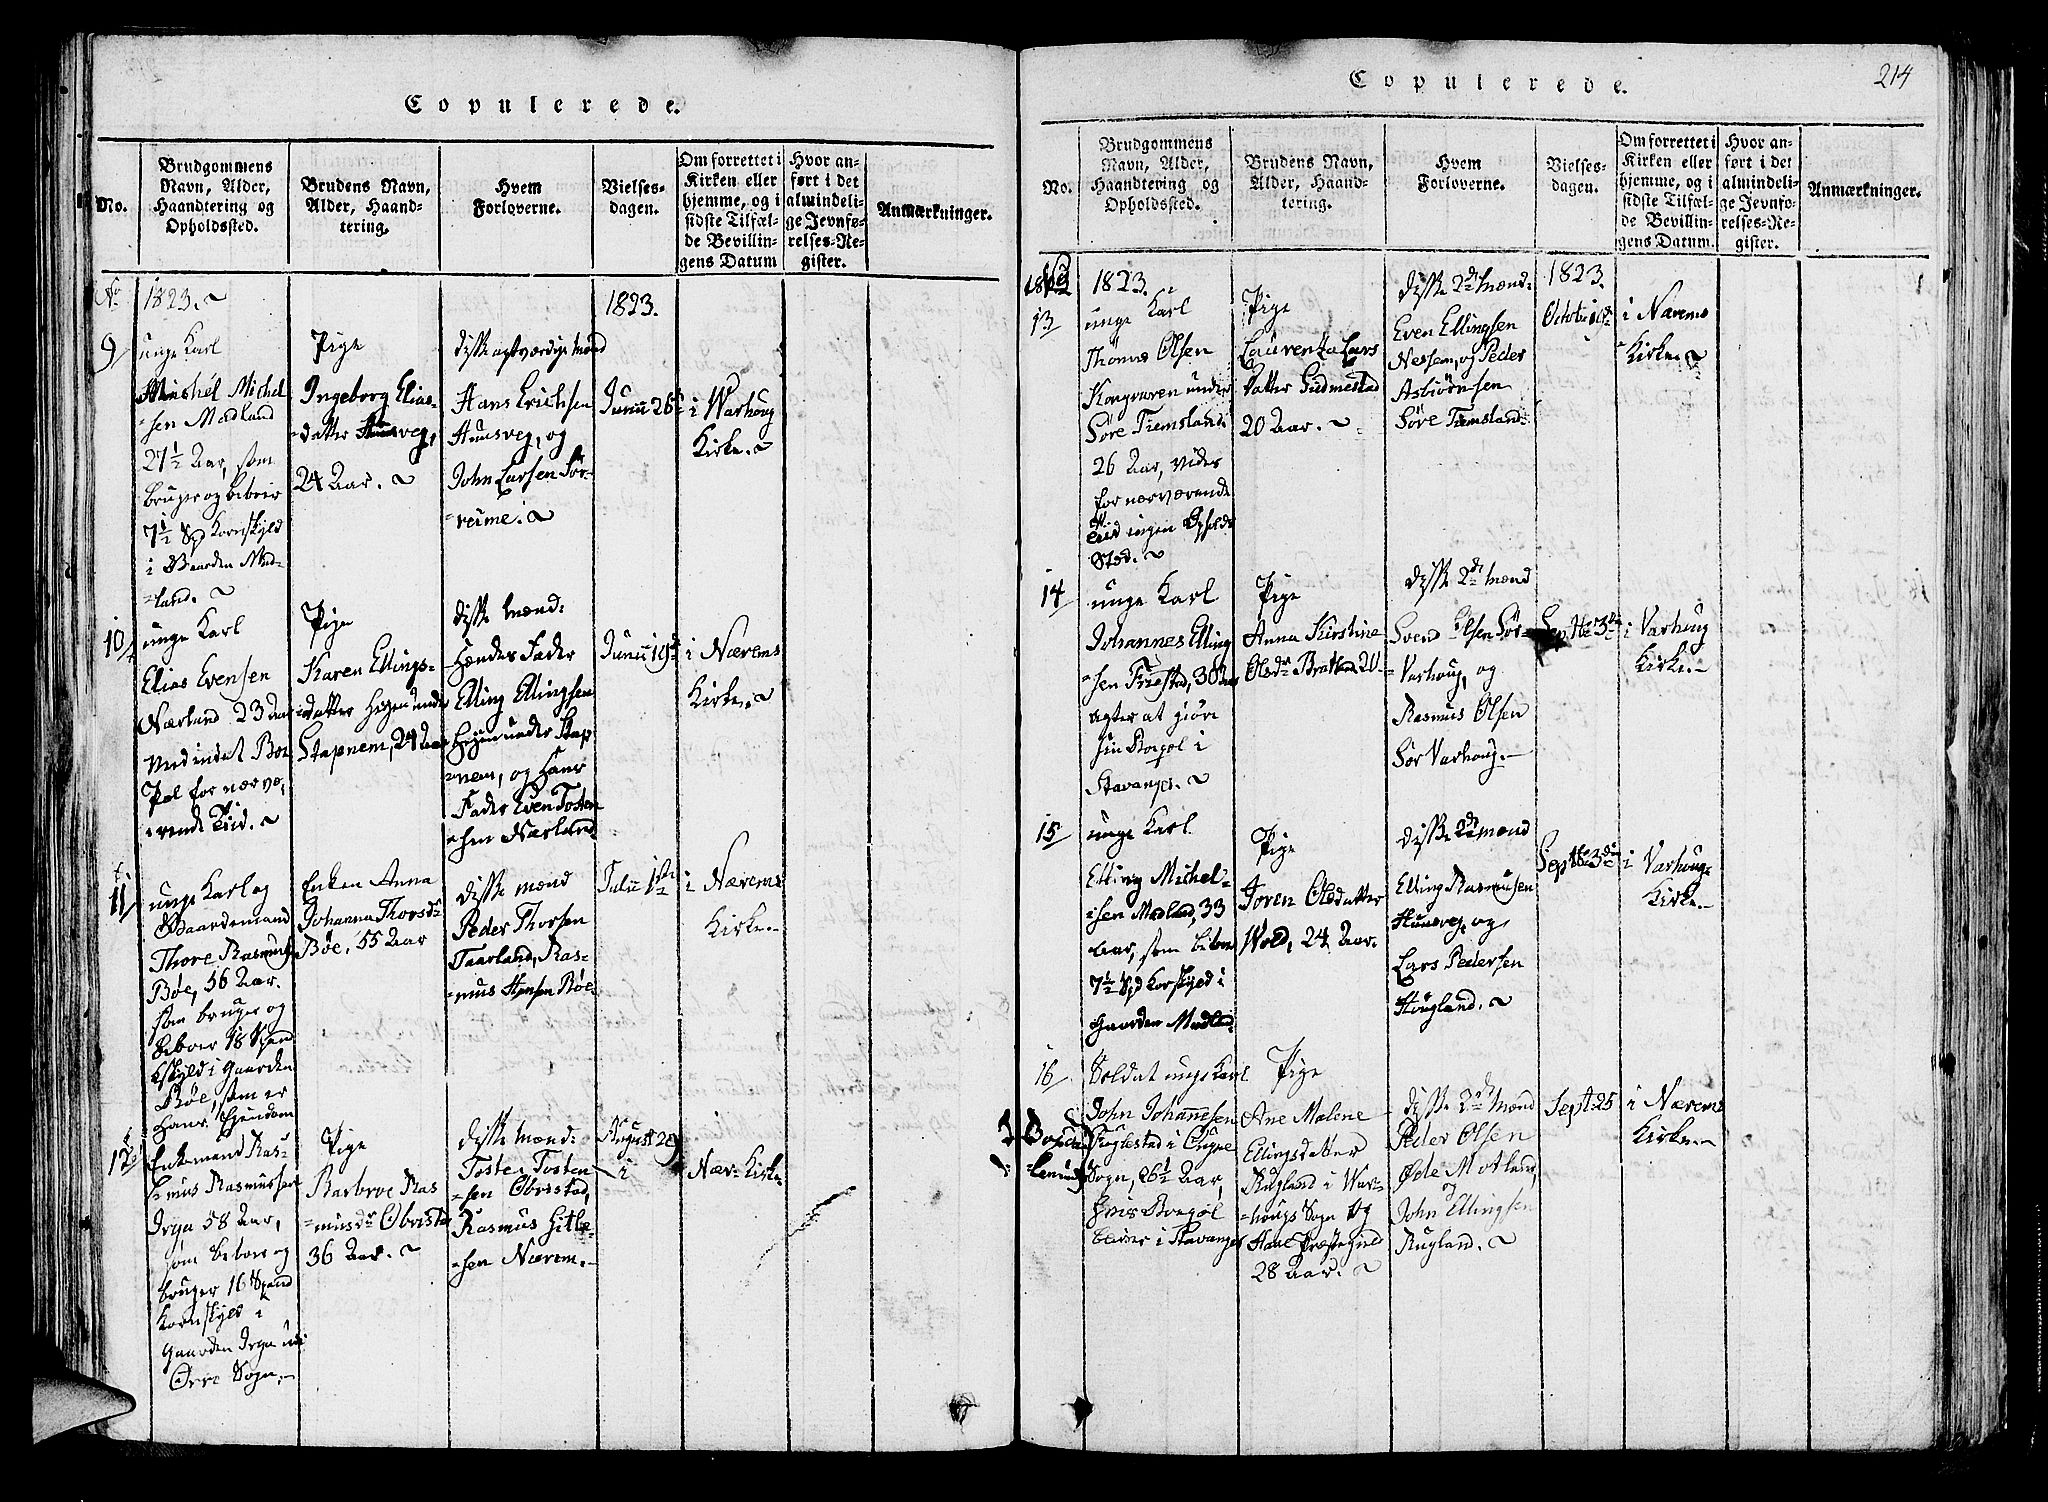 Copulerede.
No.
Brudgommens
Navn, Alder,
Haandtering og
Opholdssted.
Brudens Navn,
Alder, Haand-
tering.
Hvem
Forloverne.
Vielses-
dagen.
Om forrettet i
Kirken eller
hjemme, og i
sidste Tilfæl-
de Bevillin-
gens Datum
Hvor an-
ført i det
almindeli-
ge Jevnfø-
relses-Re-
gister.
Anmærkninger.
No 1823.
1823.
9
unge Karl
Michel Michel
-sen Mædland
27½ Aar, som
bruger og beboer
7½ Spd Kornskyld
i Gaarden Mæd-
-land.
Pige
Ingeborg Elias-
-datter Huusveg,
24 Aar.
disse agtværdige Mænd
Hans Erichsen
Huusveg, og
John Larsen Sør-
-reime.
Junii 26de
i Warhoug
Kirke.
10
unge Karl
Elias Evensen
Nærland 23 Aar
Med intet Boe
Pæl for nærvæ-
-rende Tiid.
Pige
Karen Ellings-
datter Høyen under
Stapnem, 24 Aar
disse Mænd:
Hændes Fader
Elling Ellingsen
Høyen under Stap
-nem, og Hans
Fader Even Tosten
-sen Nærland
Junii 19de
i Nærems
Kirke.
11
unge Karl og
Gaardemand
Thore Rasmusen
Bøe, 56 Aar.
som bruger og
beboer 18 Spand
Skyld i Gaarden
Bøe, som er
Hans Ejendom
Enken Anna
Johanna Thorsdr
Bøe, 55 Aar
disse Mænd
Peder Thorsen
Taarland, Ras-
-mus Hansen Bøe
Julii 1ste
i Nærems
Kirke.
12
Enkemand Ras-
-mus Rasmussen
Irgn 58 Aar,
som beboer og
bruger 16 Spand
Kornskyld i
Gaarden Irgn udi
Orre Sogn.
Pige
Barbroe Ras
-musdr Obrestad
36 Aar.
disse Mænd:
Tosten Tosten-
-sen Obrestad,
Rasmus Gitle-
-sen Nærem.
August 29
i Nær- Kirke
Copulerede.
214
No.
Brudgommens
Navn, Alder,
Haandtering og
Opholdssted.
Brudens Navn,
Alder, Haand-
tering.
Hvem
Forloverne.
Vielses-
dagen.
Om forrettet i
Kirken eller
hjemme, og i
sidste Tilfæl-
de Bevillin-
gens Datum.
Hvor an-
ført i det
almindeli-
ge Jevnfø-
relses-Re-
gister.
Anmærkninger.
1823.
1823.
13
unge Karl
Thomas Olsen
Kongvaren under
Søre Tiemsland
26 Aar, vides
for nærværende
Tiid ingen Opholds
Sted.
Pige
Laurentza Lars
Datter Gudmestad
20 Aar.
disse 2de Mænd:
Even Ellingsen
Nessem, og Peder
Asbiørnsen
Søre Tiemsland
October 10de
i Nærems
Kirke.
14
unge Karl
Johannes Elling
-sen Friestad, 38 Aar
agter at giøre
sin Boepæl i
Stavanger.
Pige
Anna Kirstine
Olsdr Bratland 20
disse 2de Mænd
Svend Olsen Sør-
-Varhoug, og
Rasmus Olsen
Sør Varhoug.
Septbe 3de
i Varhoug
Kirke.
15
unge Karl
Elling Michel-
-sen Mædland, 33
Aar, som beboer
7½ Spd Kornskyld i
Gaarden Mædland
Pige
Joren Olsdatter
Wold, 24 Aar.
disse 2de Mænd
Elling Rasmusen
Huusveg, og
Lars Pedersen
Høyland.
Septbe 3die
i Varhoug
Kirke.
16
Soldat unge Karl
John Johanesen
Kuglestad i Ougne
Sogn, 26½ Aar,
hvis Boepæl
bliver i Stavanger
Pige
Ane Malene
Ellingsdatter
Rugland i War-
-hougs Sogn og
Haae Præstegield
28 Aar.
disse 2de Mænd
Peder Olsen
Øde Motland,
og
John Ellingsen
Rugland.
Septr 25
i Nærems
Kirke.